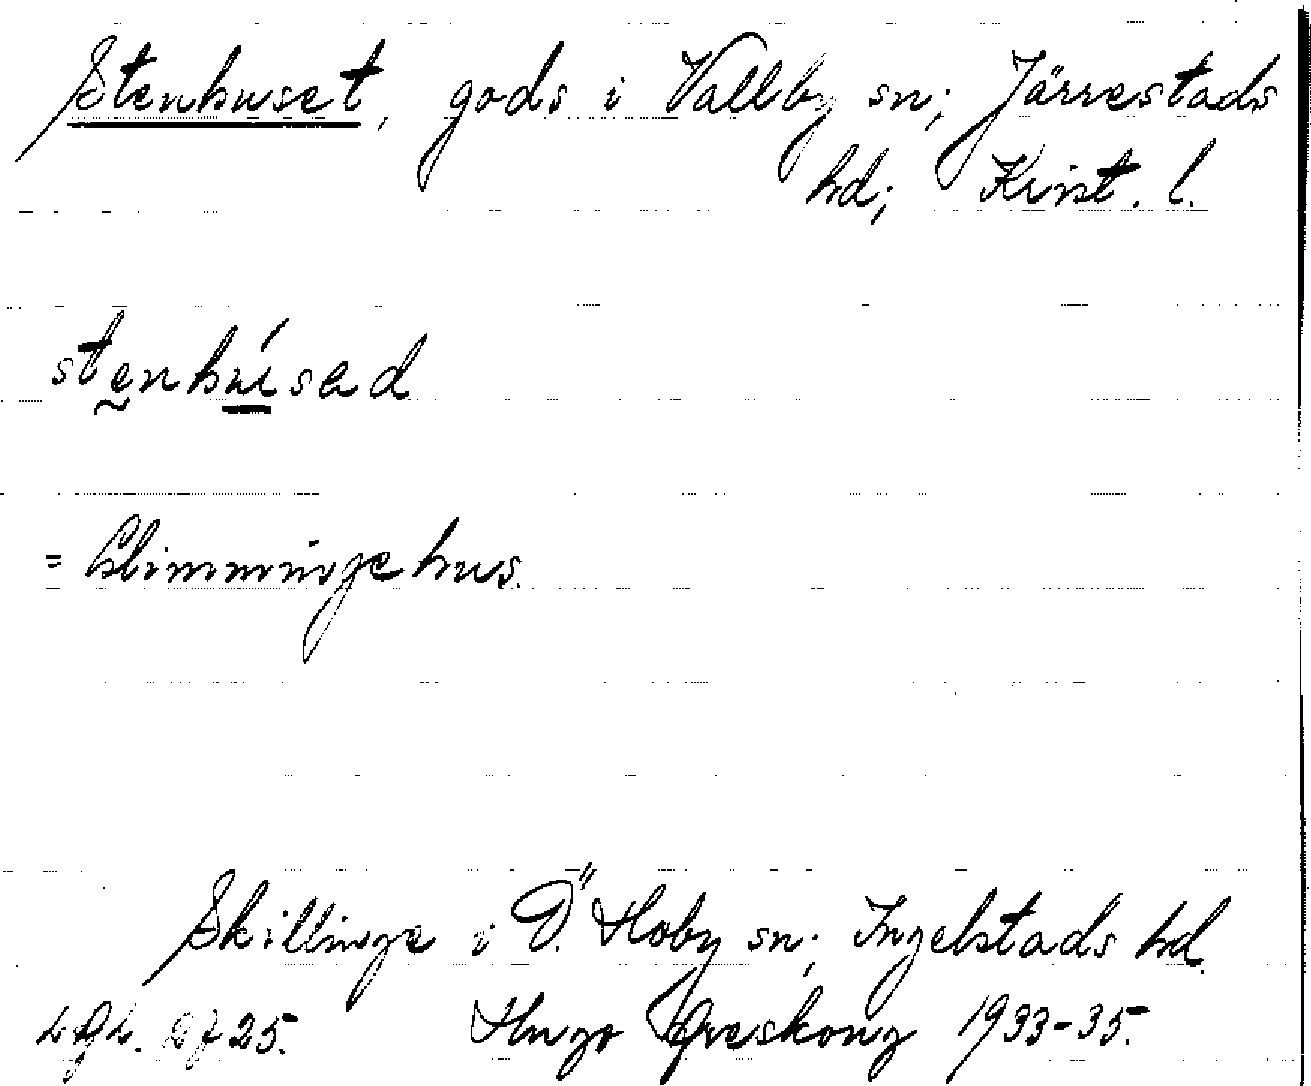 Stenhuset, gods i Vallby sn; Järrestads
hd; Krist. l.
stenhúsad
= Glimmingehus.
Skillinge i Ö. Hoby sn; Ingelstads hd.
25. Hugo Areskoug 1933-35.